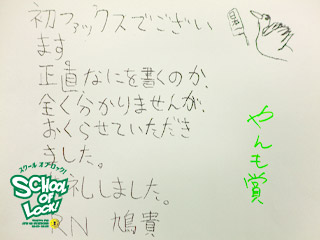 初ファックスでござい
ます。
正直なにを書くのか、
全く分かりませんが、
おくらせていただき
きました。
礼しました。
RN 鳩貴
やんも賞
スクール オブ・ロック!
SCHOOL
OF
LOCK!